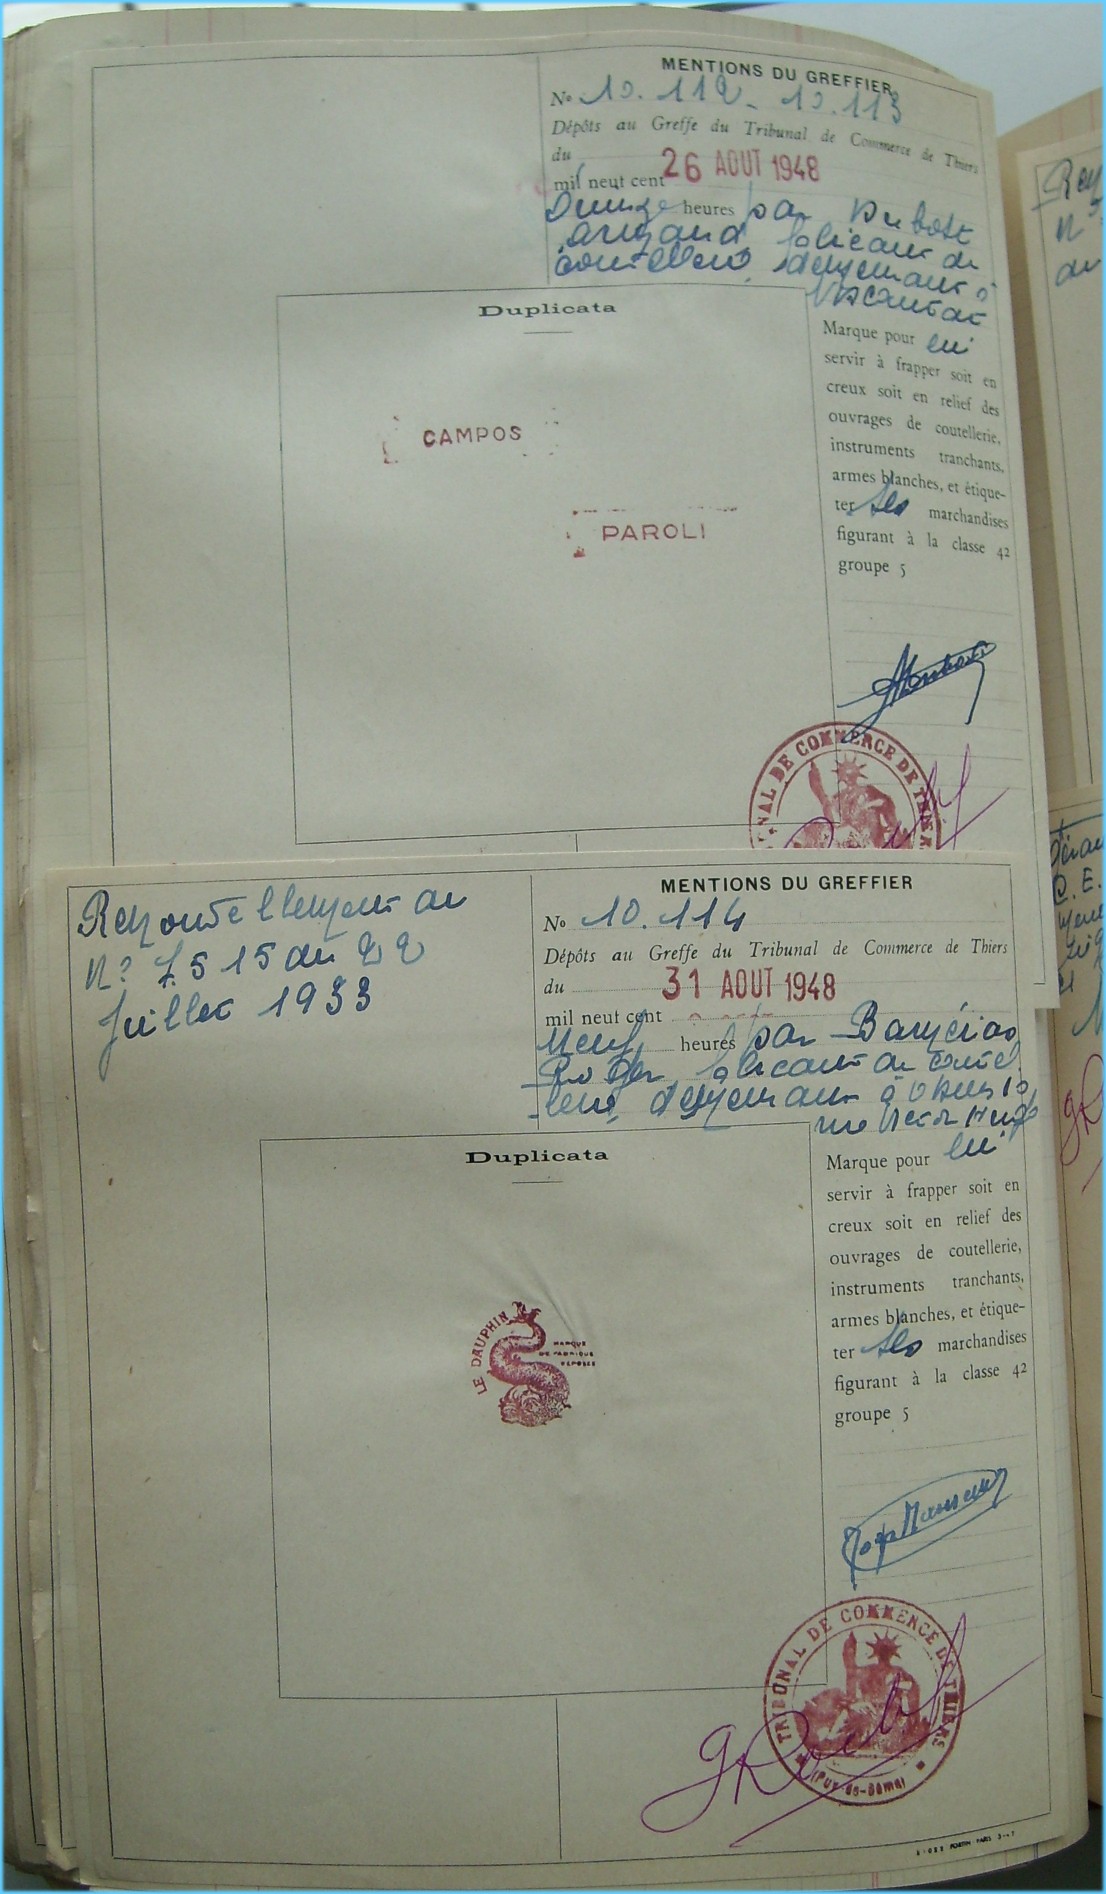 MENTIONS DU GREFFIER
No 10.112 - 10.113
Dépôts au Greffe du Tribunal de Commerce de Thiers
du
26 AOUT 1948
mil neuf cent
heures par Dubost
fabricant de
demeurant à
Duplicata
Marque pour lui
servir à frapper soit en
creux soit en relief des
ouvrages de coutellerie,
instruments tranchants,
armes blanches, et étique-
ter ses marchandises
figurant à la classe 42
groupe 5
CAMPOS
PAROLI
TRIBUNAL DE COMMERCE DE THIERS
Renouvellement du
N° 7.515 du 22
Juillet 1933
MENTIONS DU GREFFIER
No 10.114
Dépôts au Greffe du Tribunal de Commerce de Thiers
du 31 AOUT 1948
mil neuf cent
Neuf heures par
Roger fabricant de coutel
demeurant à 10
rue Victor Hugo
Duplicata
Marque pour lui
servir à frapper soit en
creux soit en relief des
ouvrages de coutellerie,
instruments tranchants,
armes blanches, et étique-
ter ses marchandises
figurant à la classe 42
groupe 5
LE DAUPHIN
MARQUE
DE FABRIQUE
DEPOSEE
TRIBUNAL DE COMMERCE DE THIERS
(Puy-de-Dôme)